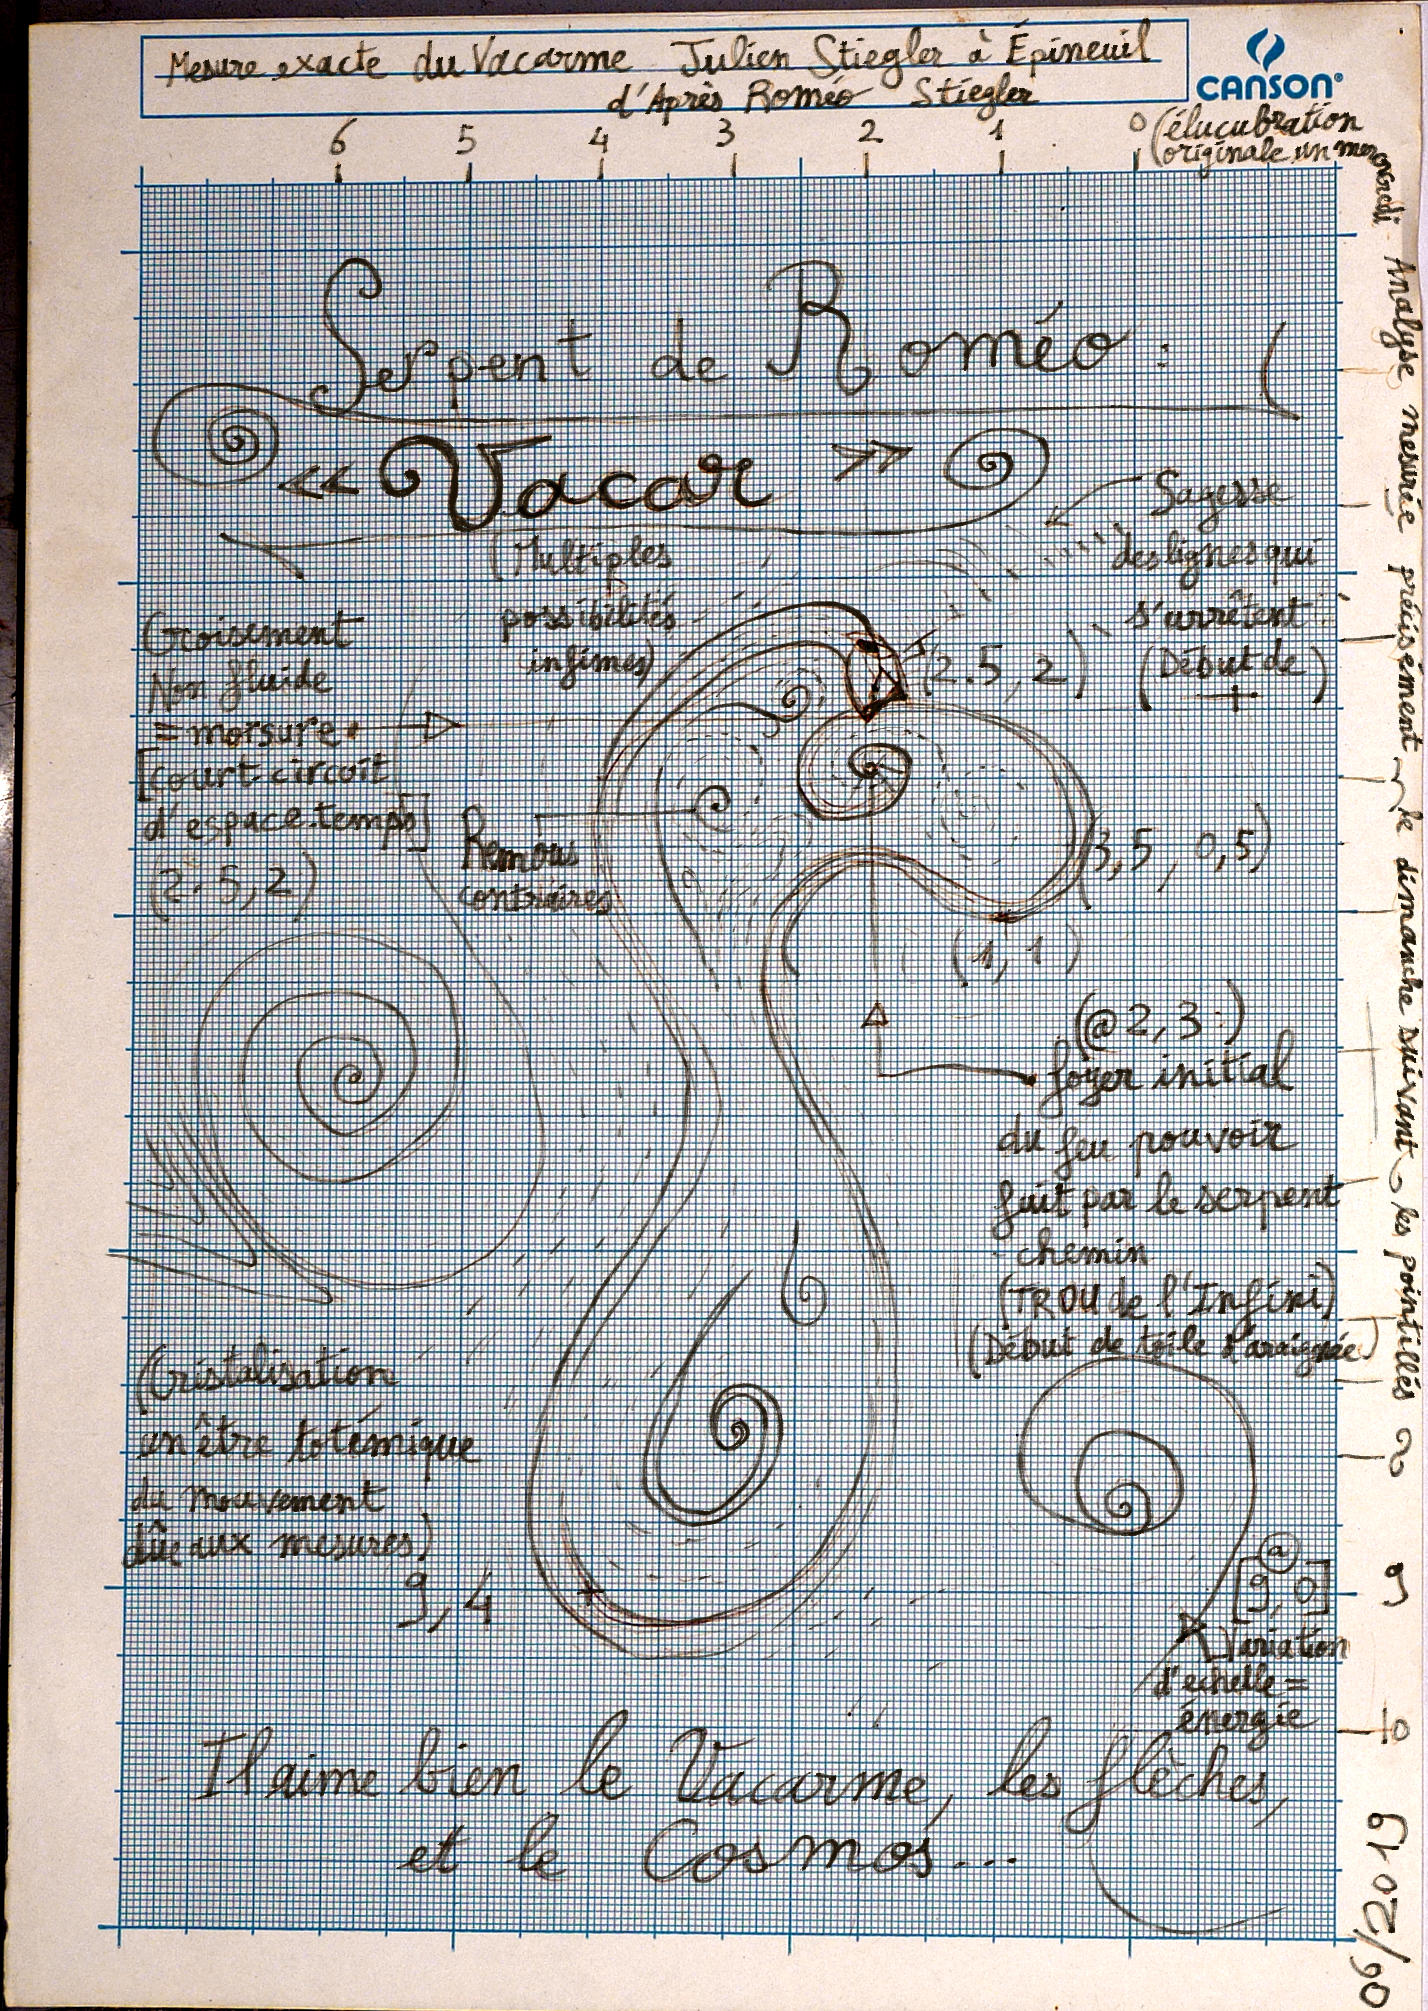 Mesure exacte du Vacarme Julien Stiegler à Épineuil
d'Après Roméo Stiegler
CANSON
6 5 4 3 2 1 0
(élucubration
originale un mercredi
Analyse mesurée précisément le dimanche suivant les pointillés
Serpent de Roméo :
<< Vacar >>
(Multiples
possibilités
infimes)
Sagesse
des lignes qui
s'arrêtent :
(Début de
+)
(2.5, 2)
Croisement
Non fluide
= morsure
[court-circuit
d'espace-temps]
(2.5, 2)
Remous
contraires
(3,5, 0,5)
(1, 1)
(@ 2, 3 :)
foyer initial
du feu pouvoir
fait par le serpent
- chemin
(TROU de l'Infini)
(Début de toile d'araignée)
(Cristalisation
en être totémique
du mouvement
dûe aux mesures)
9, 4
@
[9, 0]
Variation
d'échelle =
énergie
9
10
Il aime bien le Vacarme, les flèches,
et le Cosmos...
06/2019